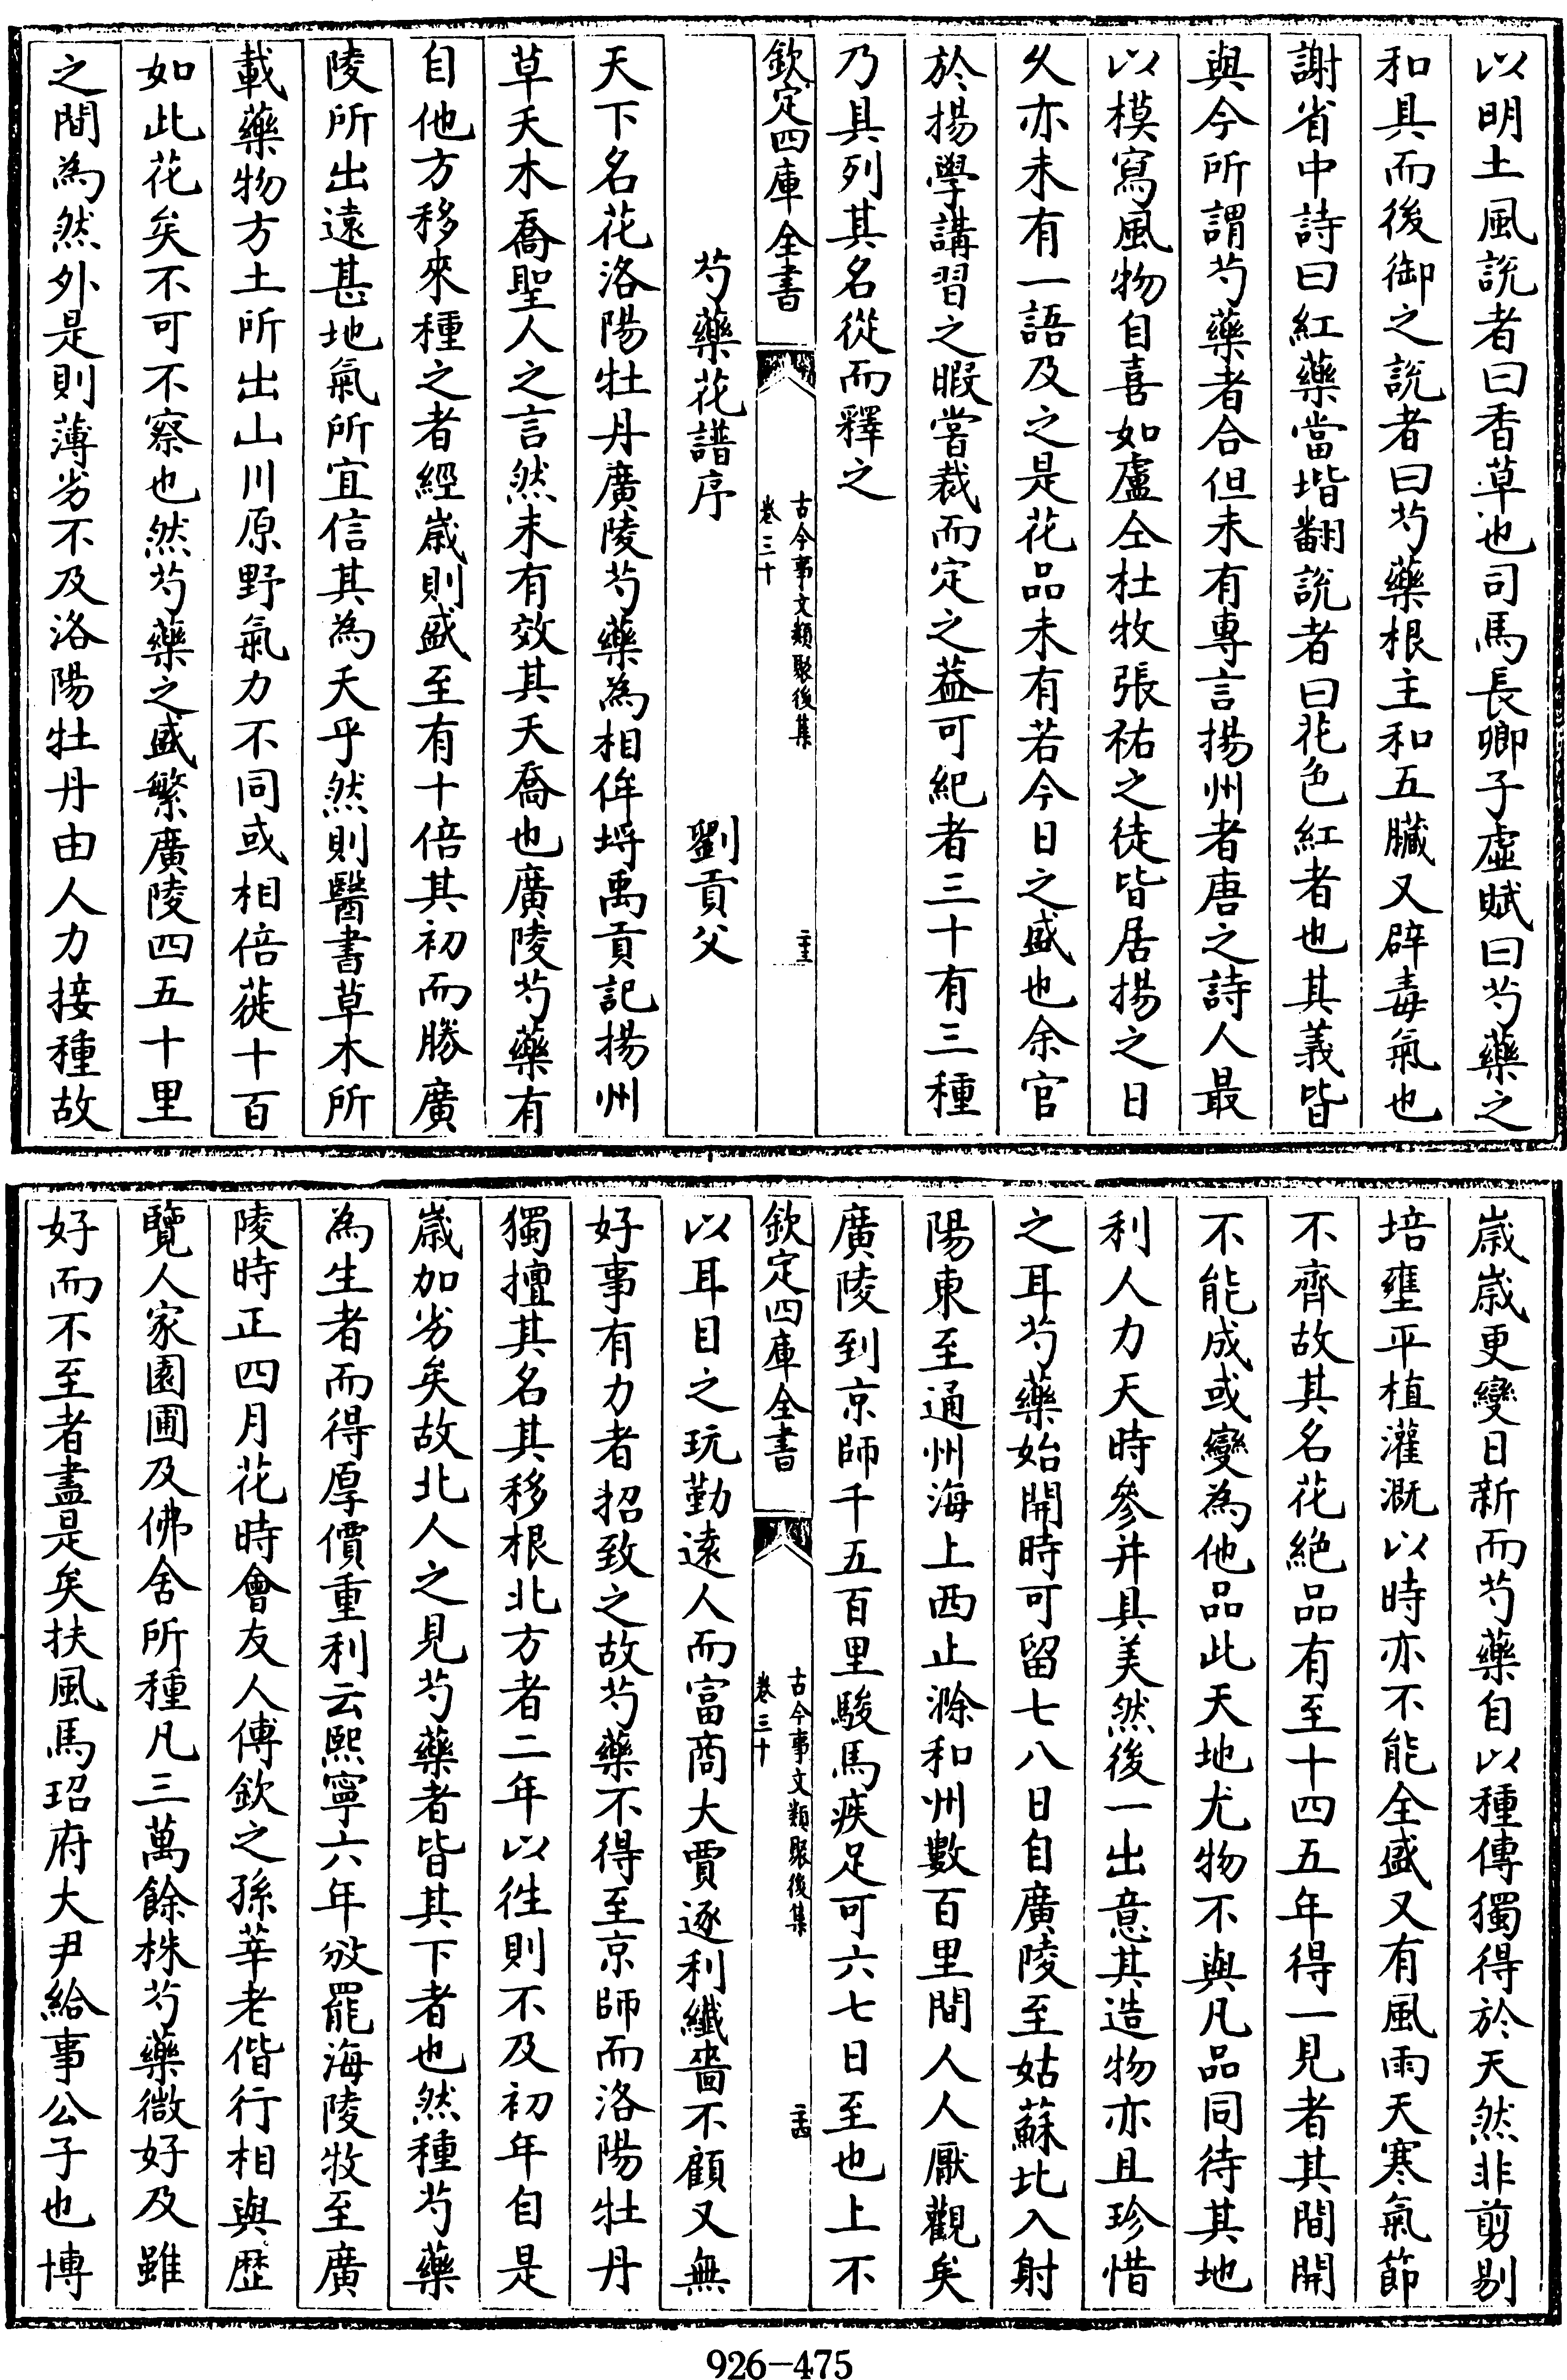 以明土風說者曰香草也司馬長卿子虛賦曰芍藥之
和具而後御之說者曰芍藥根主和五臟又辟毒氣也
謝省中詩曰紅藥當堦翻說者曰花色紅者也其義皆
與今所謂芍藥者合但未有專言揚州者唐之詩人最
以模寫風物自喜如盧仝杜牧張祐之徒皆居揚之日
久亦未有一語及之是花品未有若今日之盛也余官
於揚學講習之暇嘗裁而定之益可紀者三十有三種
乃具列其名從而釋之
欽定四庫全書
古今事文類聚後集
卷三十
芍藥花譜序 劉貢父
天下名花洛陽牡丹廣陵芍藥為相侔埒禹貢記揚州
草夭木喬聖人之言然未有效其夭喬也廣陵芍藥有
自他方移來種之者經歲則盛至有十倍其初而勝廣
陵所出遠甚地氣所宜信其為天乎然則醫書草木所
載藥物方土所出山川原野氣力不同或相倍蓰十百
如此花矣不可不察也然芍藥之盛繁廣陵四五十里
之間為然外是則薄劣不及洛陽牡丹由人力接種故
歲歲更變日新而芍藥自以種傳獨得於天然非剪剔
培壅平植灌溉以時亦不能全盛又有風雨天寒氣節
不齊故其名花絶品有至十四五年得一見者其間開
不能成或變為他品此天地尤物不與凡品同待其地
利人力天時參并具美然後一出意其造物亦且珍惜
之耳芍藥始開時可留七八日自廣陵至姑蘇北入射
陽東至通州海上西止滁和州數百里間人人厭觀矣
廣陵到京師千五百里駿馬疾足可六七日至也上不
欽定四庫全書
古今事文類聚後集
卷三十
以耳目之玩勤遠人而富商大賈逐利纖嗇不顧又無
好事有力者招致之故芍藥不得至京師而洛陽牡丹
獨擅其名其移根北方者二年以徃則不及初年自是
歲加劣矣故北人之見芍藥者皆其下者也然種芍藥
為生者而得厚價重利云熙寧六年攽罷海陵牧至廣
陵時正四月花時會友人傅欽之孫莘老偕行相與歴
覽人家園圃及佛舍所種凡三萬餘株芍藥微好及雖
好而不至者盡是矣扶風馬玿府大尹給事公子也博
926-475